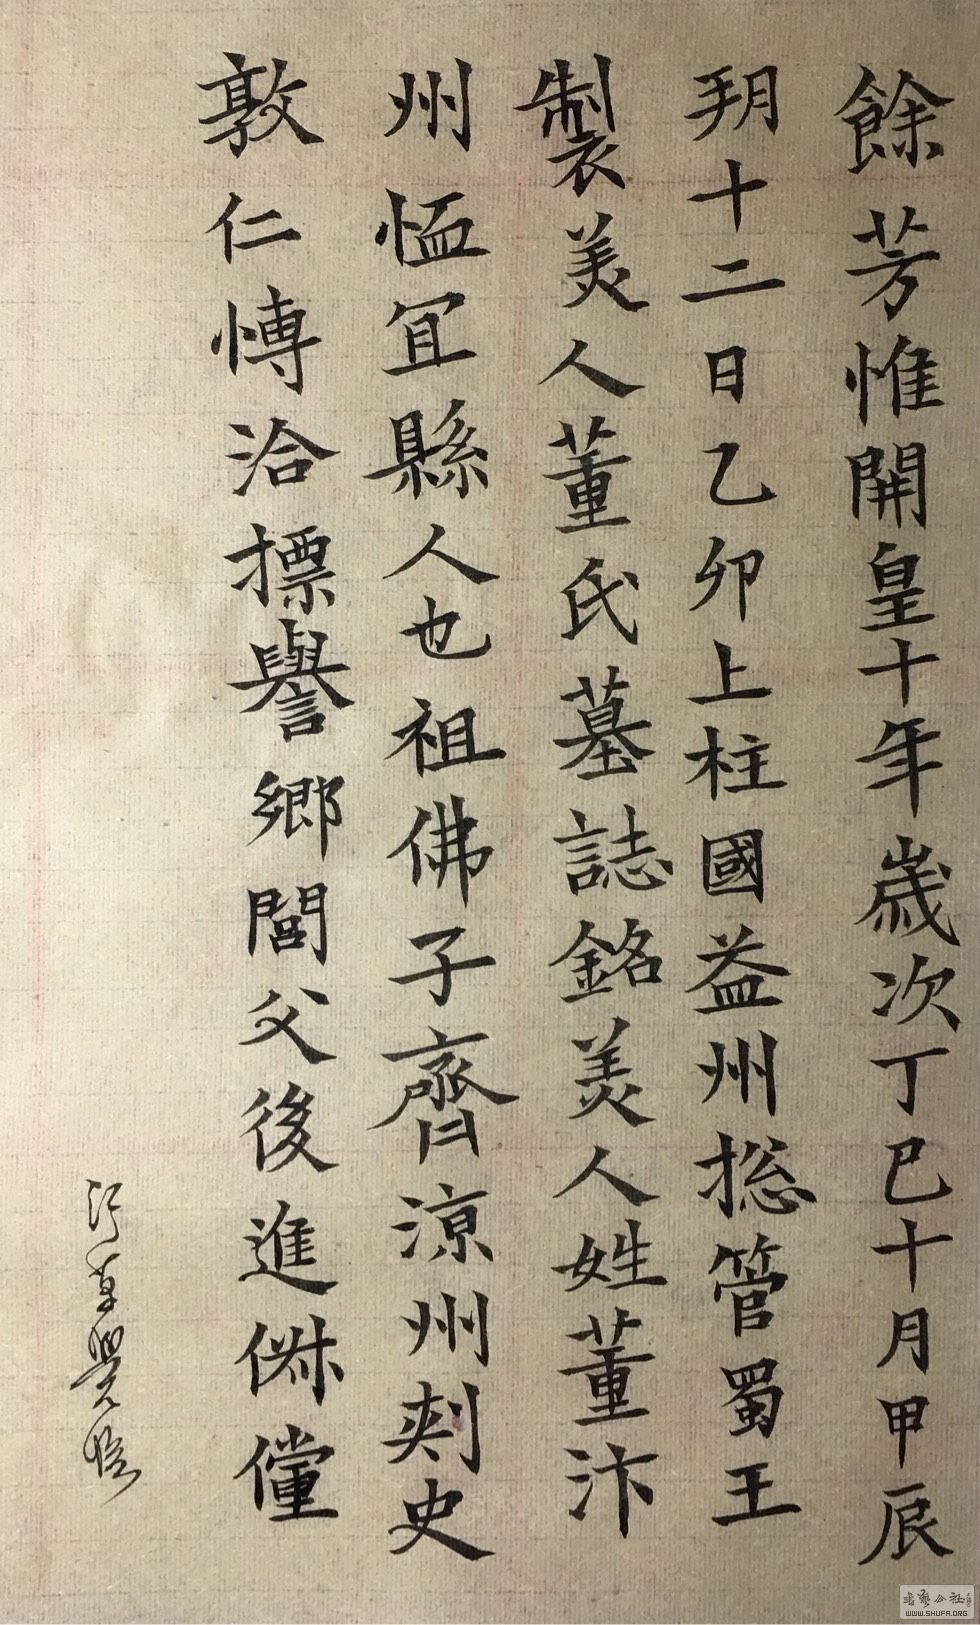 餘芳惟開皇十年歲次丁巳十月甲辰
朔十二日乙卯上柱國益州揔管蜀王
製美人董氏墓誌銘美人姓董汴
州恤冝縣人也祖佛子齊涼州刾史
敦仁愽洽摽譽鄉閭父後進俶儻
書藝公社
WWW.SHUFA.ORG